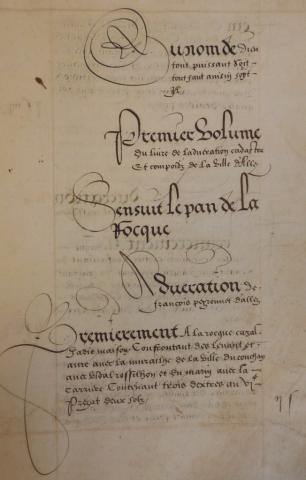 Au nom de Dieu
tout puissant Soit
tout fait ainsin soyt
Premier Volume
du livre de laducration cadastre
Et compoidz de la ville dAllez
Sensuit le pan de la
Rocque
Aducration de
françois peyronnet dallez
Premierement A la rocque cazal
Jadis maison Confrontant des levant et
aure avec la muralhe de la ville du couchan
avec vidal rossilhon et du marin avec la
carriere Contenant trois dextres
Prezat deux solz